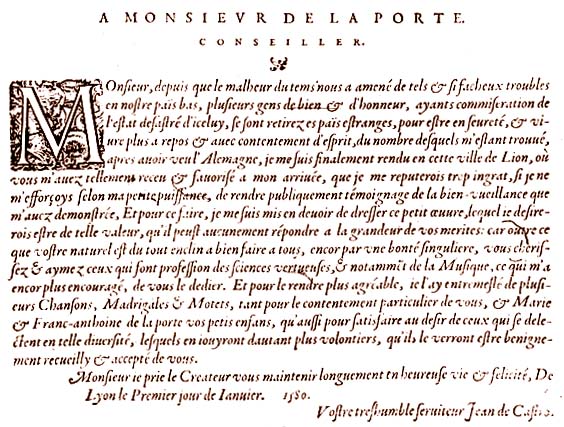 A MONSIEVR DE LA PORTE.
CONSEILLER.
MOnsieur, depuis que le malheur du tems nous a amené de tels & si facheux troubles
en nostre païs bas, plusieurs gens de bien & d'honneur, ayants commiseration de
l'estat desastré d'iceluy, se sont retirez es païs estranges, pour estre en seureté, & vi-
ure plus a repos & auec contentement d'esprit, du nombre desquels m'estant trouué,
apres auoir veu l'Alemagne, je me suis finalement rendu en cette ville de Lion, où
vous m'auez tellement receu & fauorisé a mon arriuée, que je me reputerois trop ingrat, si je ne
m'efforçoys selon ma petite puissance, de rendre publiquement témoignage de la bien-vueillance que
m'auez demonstrée, Et pour ce faire, je me suis mis en deuoir de dresser ce petit œuure, lequel je desire-
rois estre de telle valeur, qu'il peust aucunement répondre a la grandeur de vos merites: car outre ce
que vostre naturel est du tout enclin a bien faire a tous, encor par vne bonté singuliere, vous cheris-
sez & aymez ceux qui font profession des sciences vertueuses, & notammēt de la Musique, ce qui m'a
encor plus encouragé, de vous le dedier. Et pour le rendre plus agréable, ie l'ay entremesté de plusi-
eurs Chansons, Madrigales & Motets, tant pour le contentement particulier de vous, & Marie
& Franc-anthoine de la porte vos petis enfans, qu'aussi pour satisfaire au desir de ceux qui se dele-
ctent en telle diuersité, lesquels en iouyront dautant plus volontiers, qu'ils le verront estre benigne-
ment recueilly & accepté de vous.
Monsieur ie prie le Createur vous maintenir longuement en heureuse vie & felicité, De
Lyon le Premier jour de Ianuier. 1580.
Vostre treshumble seruiteur Jean de Castro.